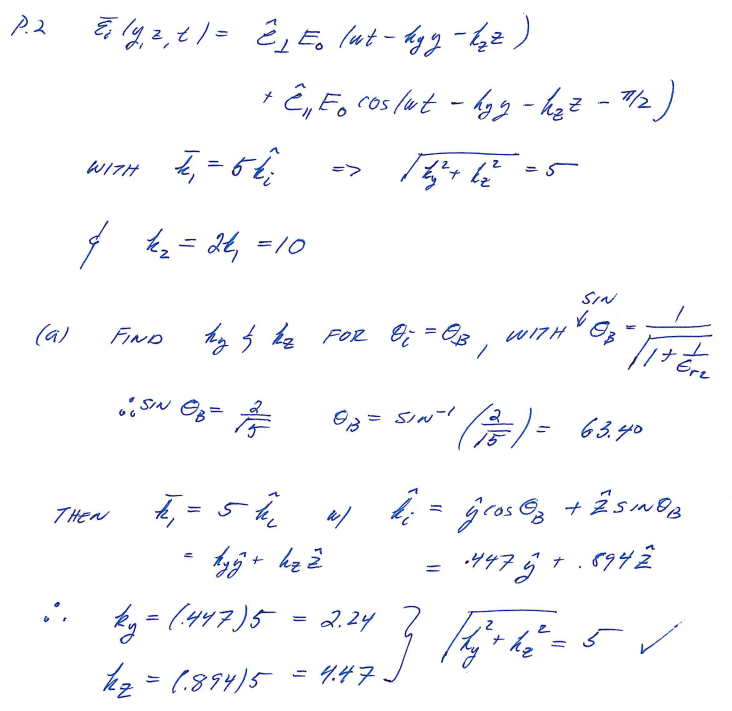 P.2 ℰ̄ᵢ(y,z,t) = ê⊥ E₀ (ωt - k_y y - k_z z)
+ ê∥ E₀ cos(ωt - k_y y - k_z z - π/2)
WITH k̄₁ = 5 k̂ᵢ => √(k_y² + k_z²) = 5
& k₂ = 2k₁ = 10
(a) FIND k_y & k_z FOR θᵢ = θ_B, WITH SIN θ_B = 1/√(1 + 1/ε_r2)
∴ SIN θ_B = 2/√5 θ_B = SIN⁻¹(2/√5) = 63.40
THEN k̄₁ = 5 k̂ᵢ w/ k̂ᵢ = ŷ cos θ_B + ẑ SIN θ_B
= k_y ŷ + k_z ẑ = .447 ŷ + .894 ẑ
∴ k_y = (.447)5 = 2.24 } √(k_y² + k_z²) = 5 ✓
k_z = (.894)5 = 4.47